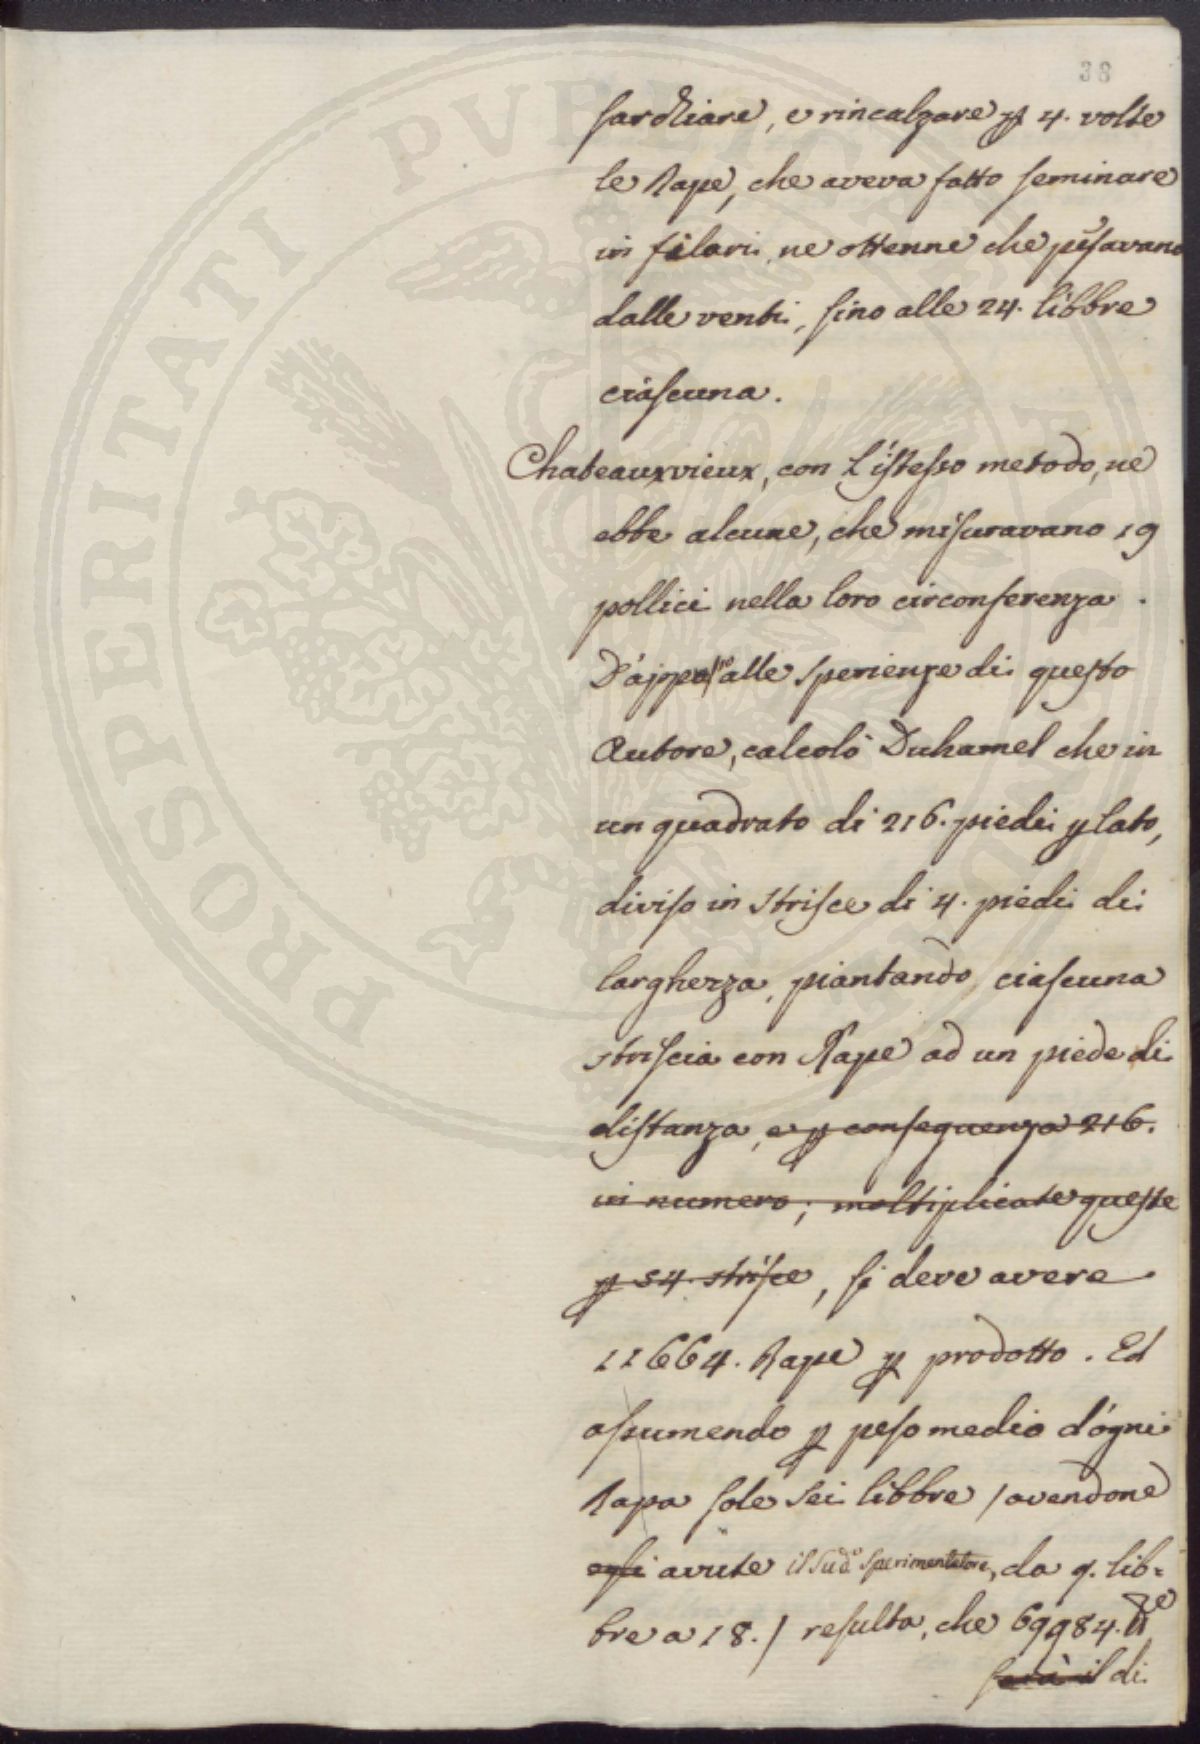 38
sarchiare, e rincalzare p 4. volte
le Rape, che aveva fatto seminare
in filari, ne ottenne che pesavano
dalle venti, sino alle 24. libbre
ciascuna.
Chateauxvieux, con l'istesso metodo, ne
ebbe alcune, che misuravano 19
pollici nella loro circonferenza.
D'appresso alle sperienze di questo
Autore, calcolò Duhamel che in
un quadrato di 216. piedi p lato,
diviso in strisce di 4. piedi di
larghezza, piantando ciascuna
striscia con Rape ad un piede di
distanza, e p conseguenza 216.
in numero; moltiplicate queste
p 54. strisce, si deve avere
11664. Rape p prodotto. Ed
assumendo p peso medio d'ogni
Rapa sole sei libbre / avendone
egli avute il Sud.o Sperimentatore, da 9. lib=
bre a 18. / resulta, che 69984. lle
sarà il di
PROSPERITATI PVBLICAE AVGENDAE